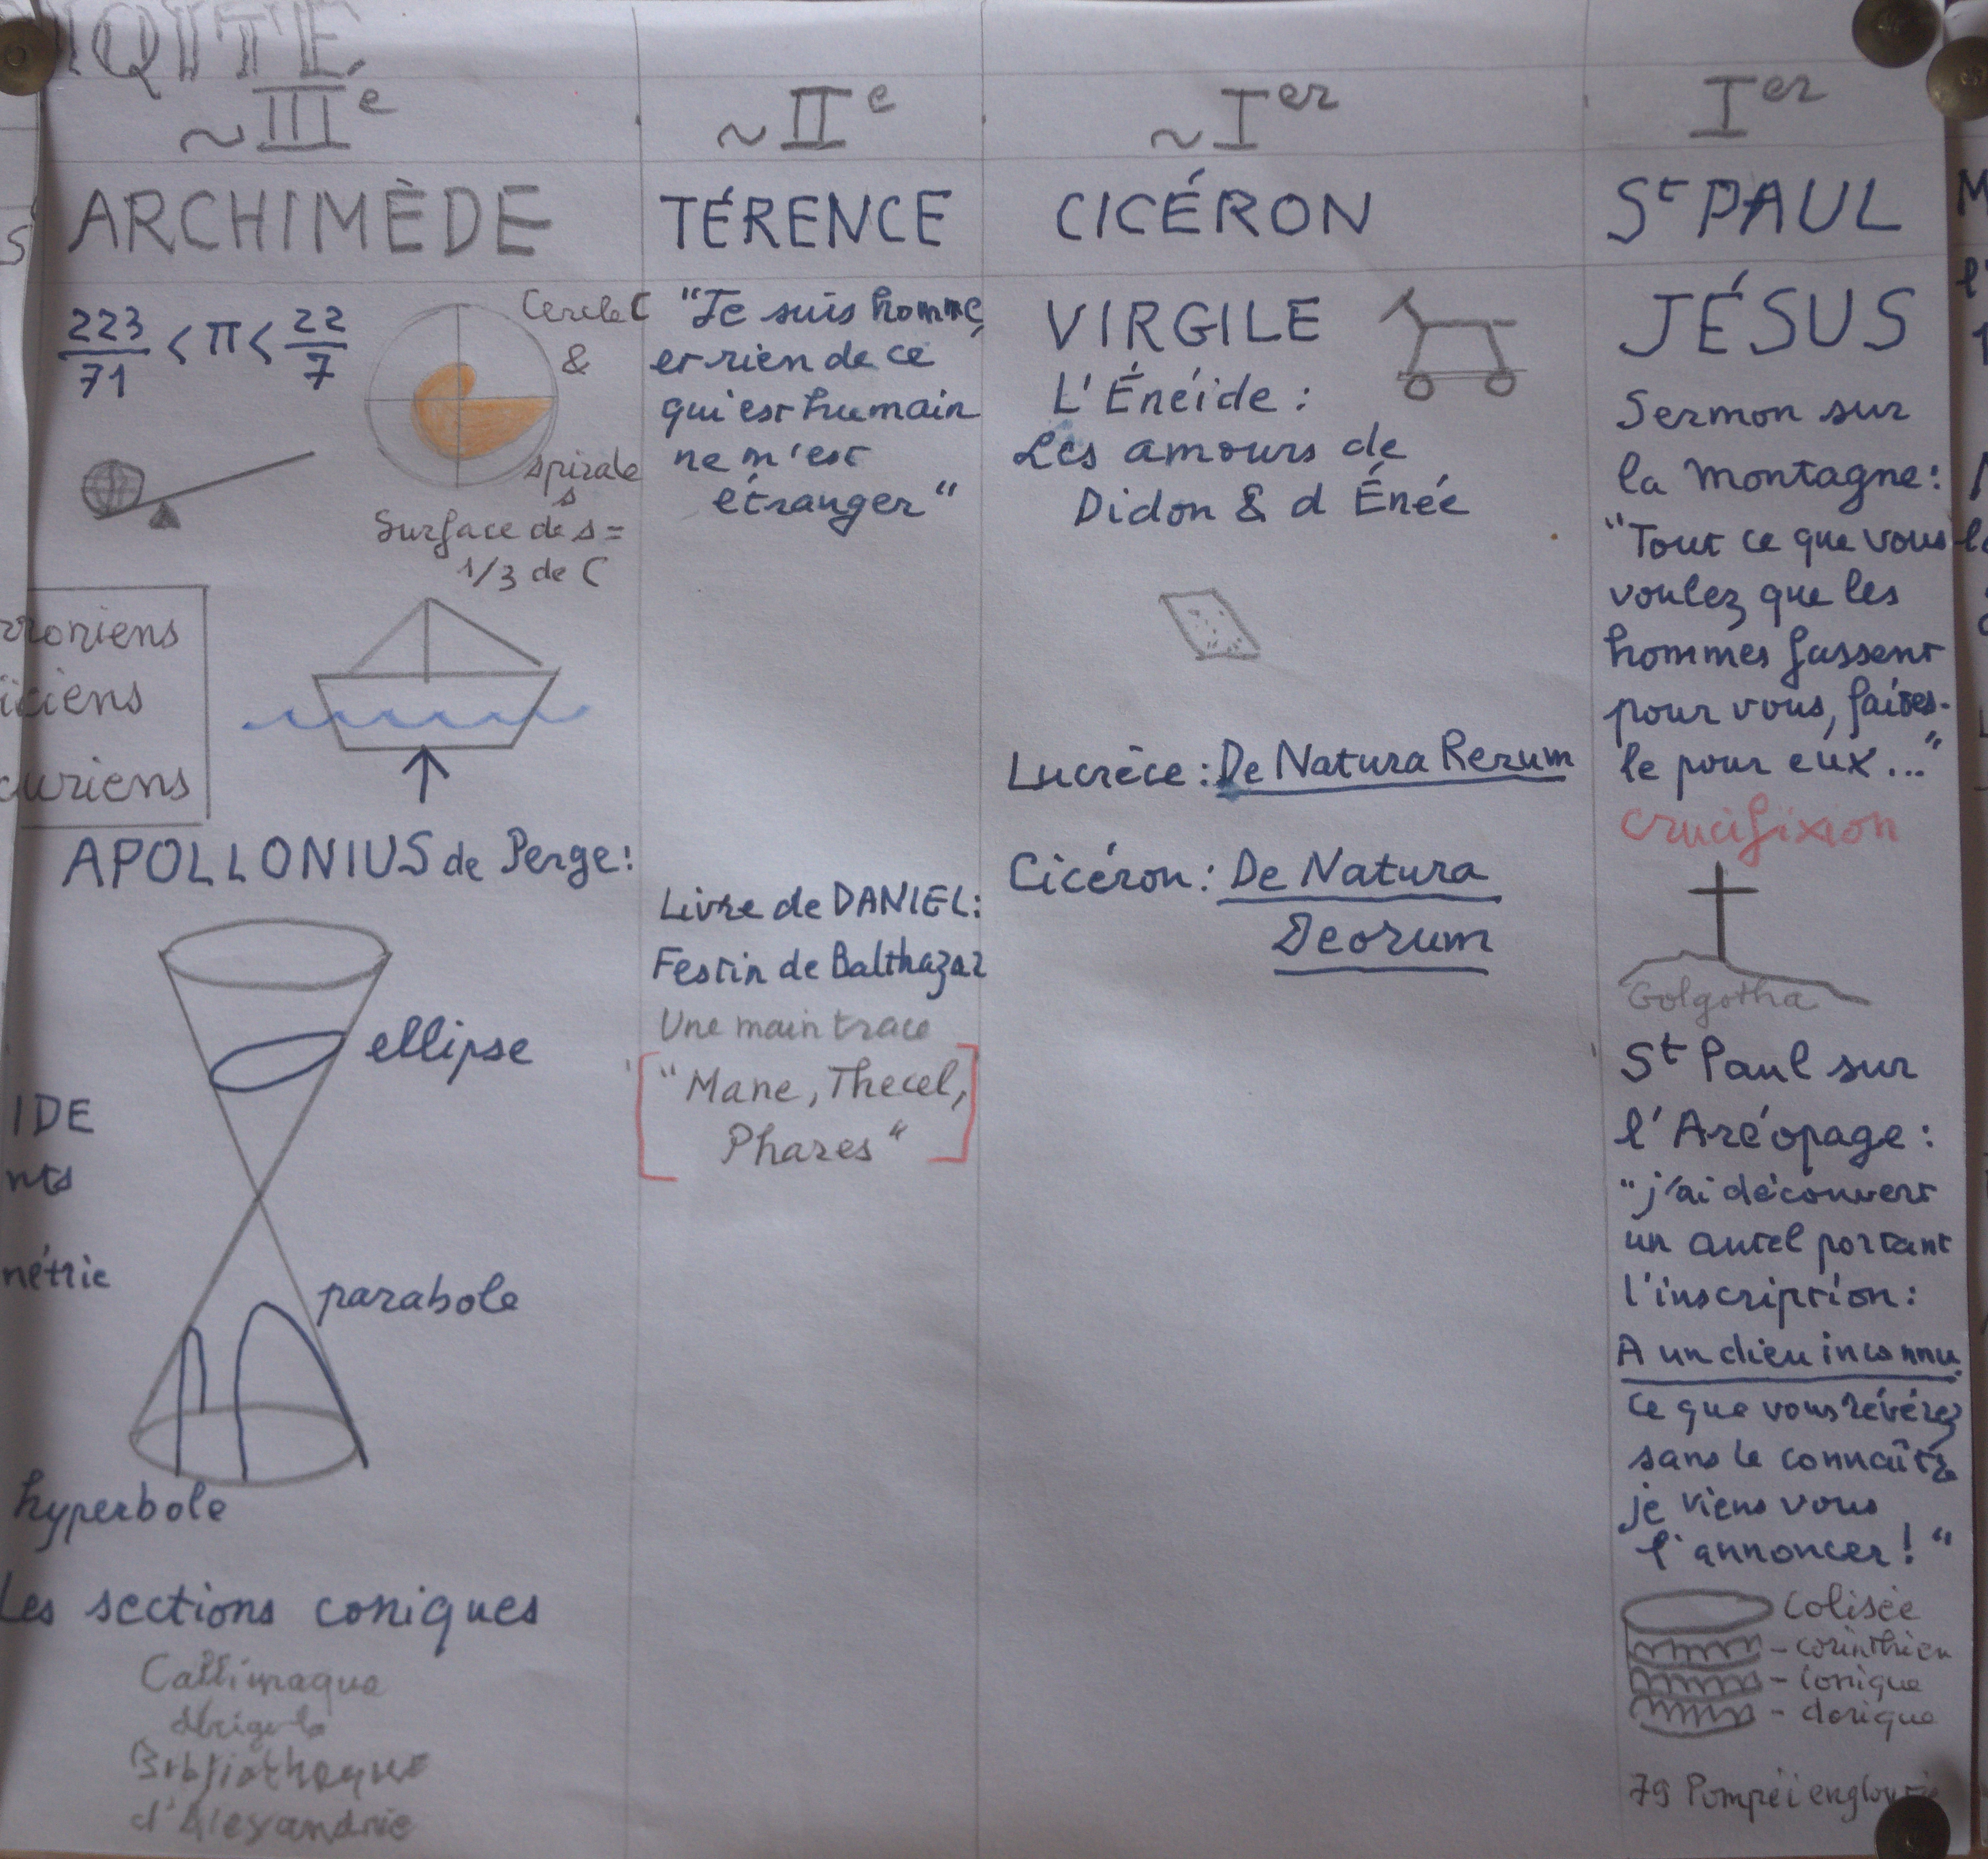 IQITE
~IIIe
ARCHIMÈDE
223/71 < π < 22/7
Cercle C
&
spirale
s
Surface de s =
1/3 de C
roniens
ïciens
curiens
APOLLONIUS de Perge:
ellipse
IDE
nts
nétrie
parabole
hyperbole
Les sections coniques
Callimaque
dirige la
Bibliotheque
d'Alexandrie
~IIe
TÉRENCE
"Je suis homme,
et rien de ce
qui est humain
ne m'est
étranger"
Livre de DANIEL:
Festin de Balthazar
Une main trace
"Mane, Thecel,
Phares"
~Ier
CICÉRON
VIRGILE
L'Énéide :
Les amours de
Didon & d Énée
Lucrèce : De Natura Rerum
Cicéron : De Natura
Deorum
Ier
St PAUL
JÉSUS
Sermon sur
la montagne:
"Tout ce que vous
voulez que les
hommes fassent
pour vous, faites-
le pour eux..."
crucifixion
Golgotha
St Paul sur
l'Aréopage :
"j'ai découvert
un autel portant
l'inscription:
A un dieu inconnu
ce que vous révérez
sans le connaître
je viens vous
l'annoncer! "
Colisée
- corinthien
- ionique
- dorique
79 Pompéi engloutie